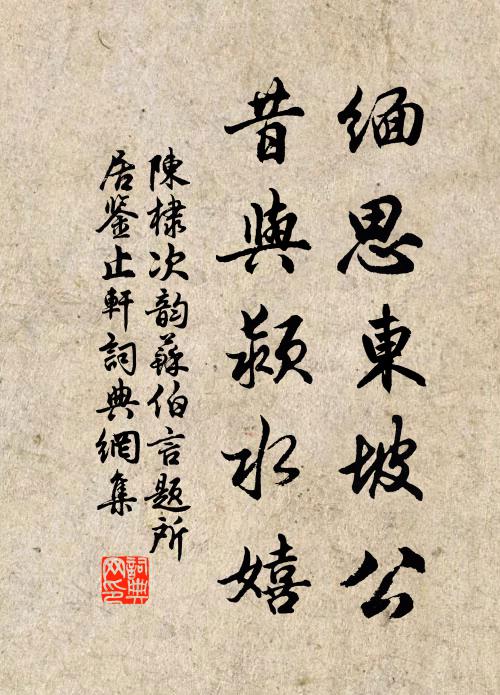 緬思東坡公
昔與潁水嬉
陳棣次韵蘇伯言題所
居鉴止軒詞典網集
詞典
网印